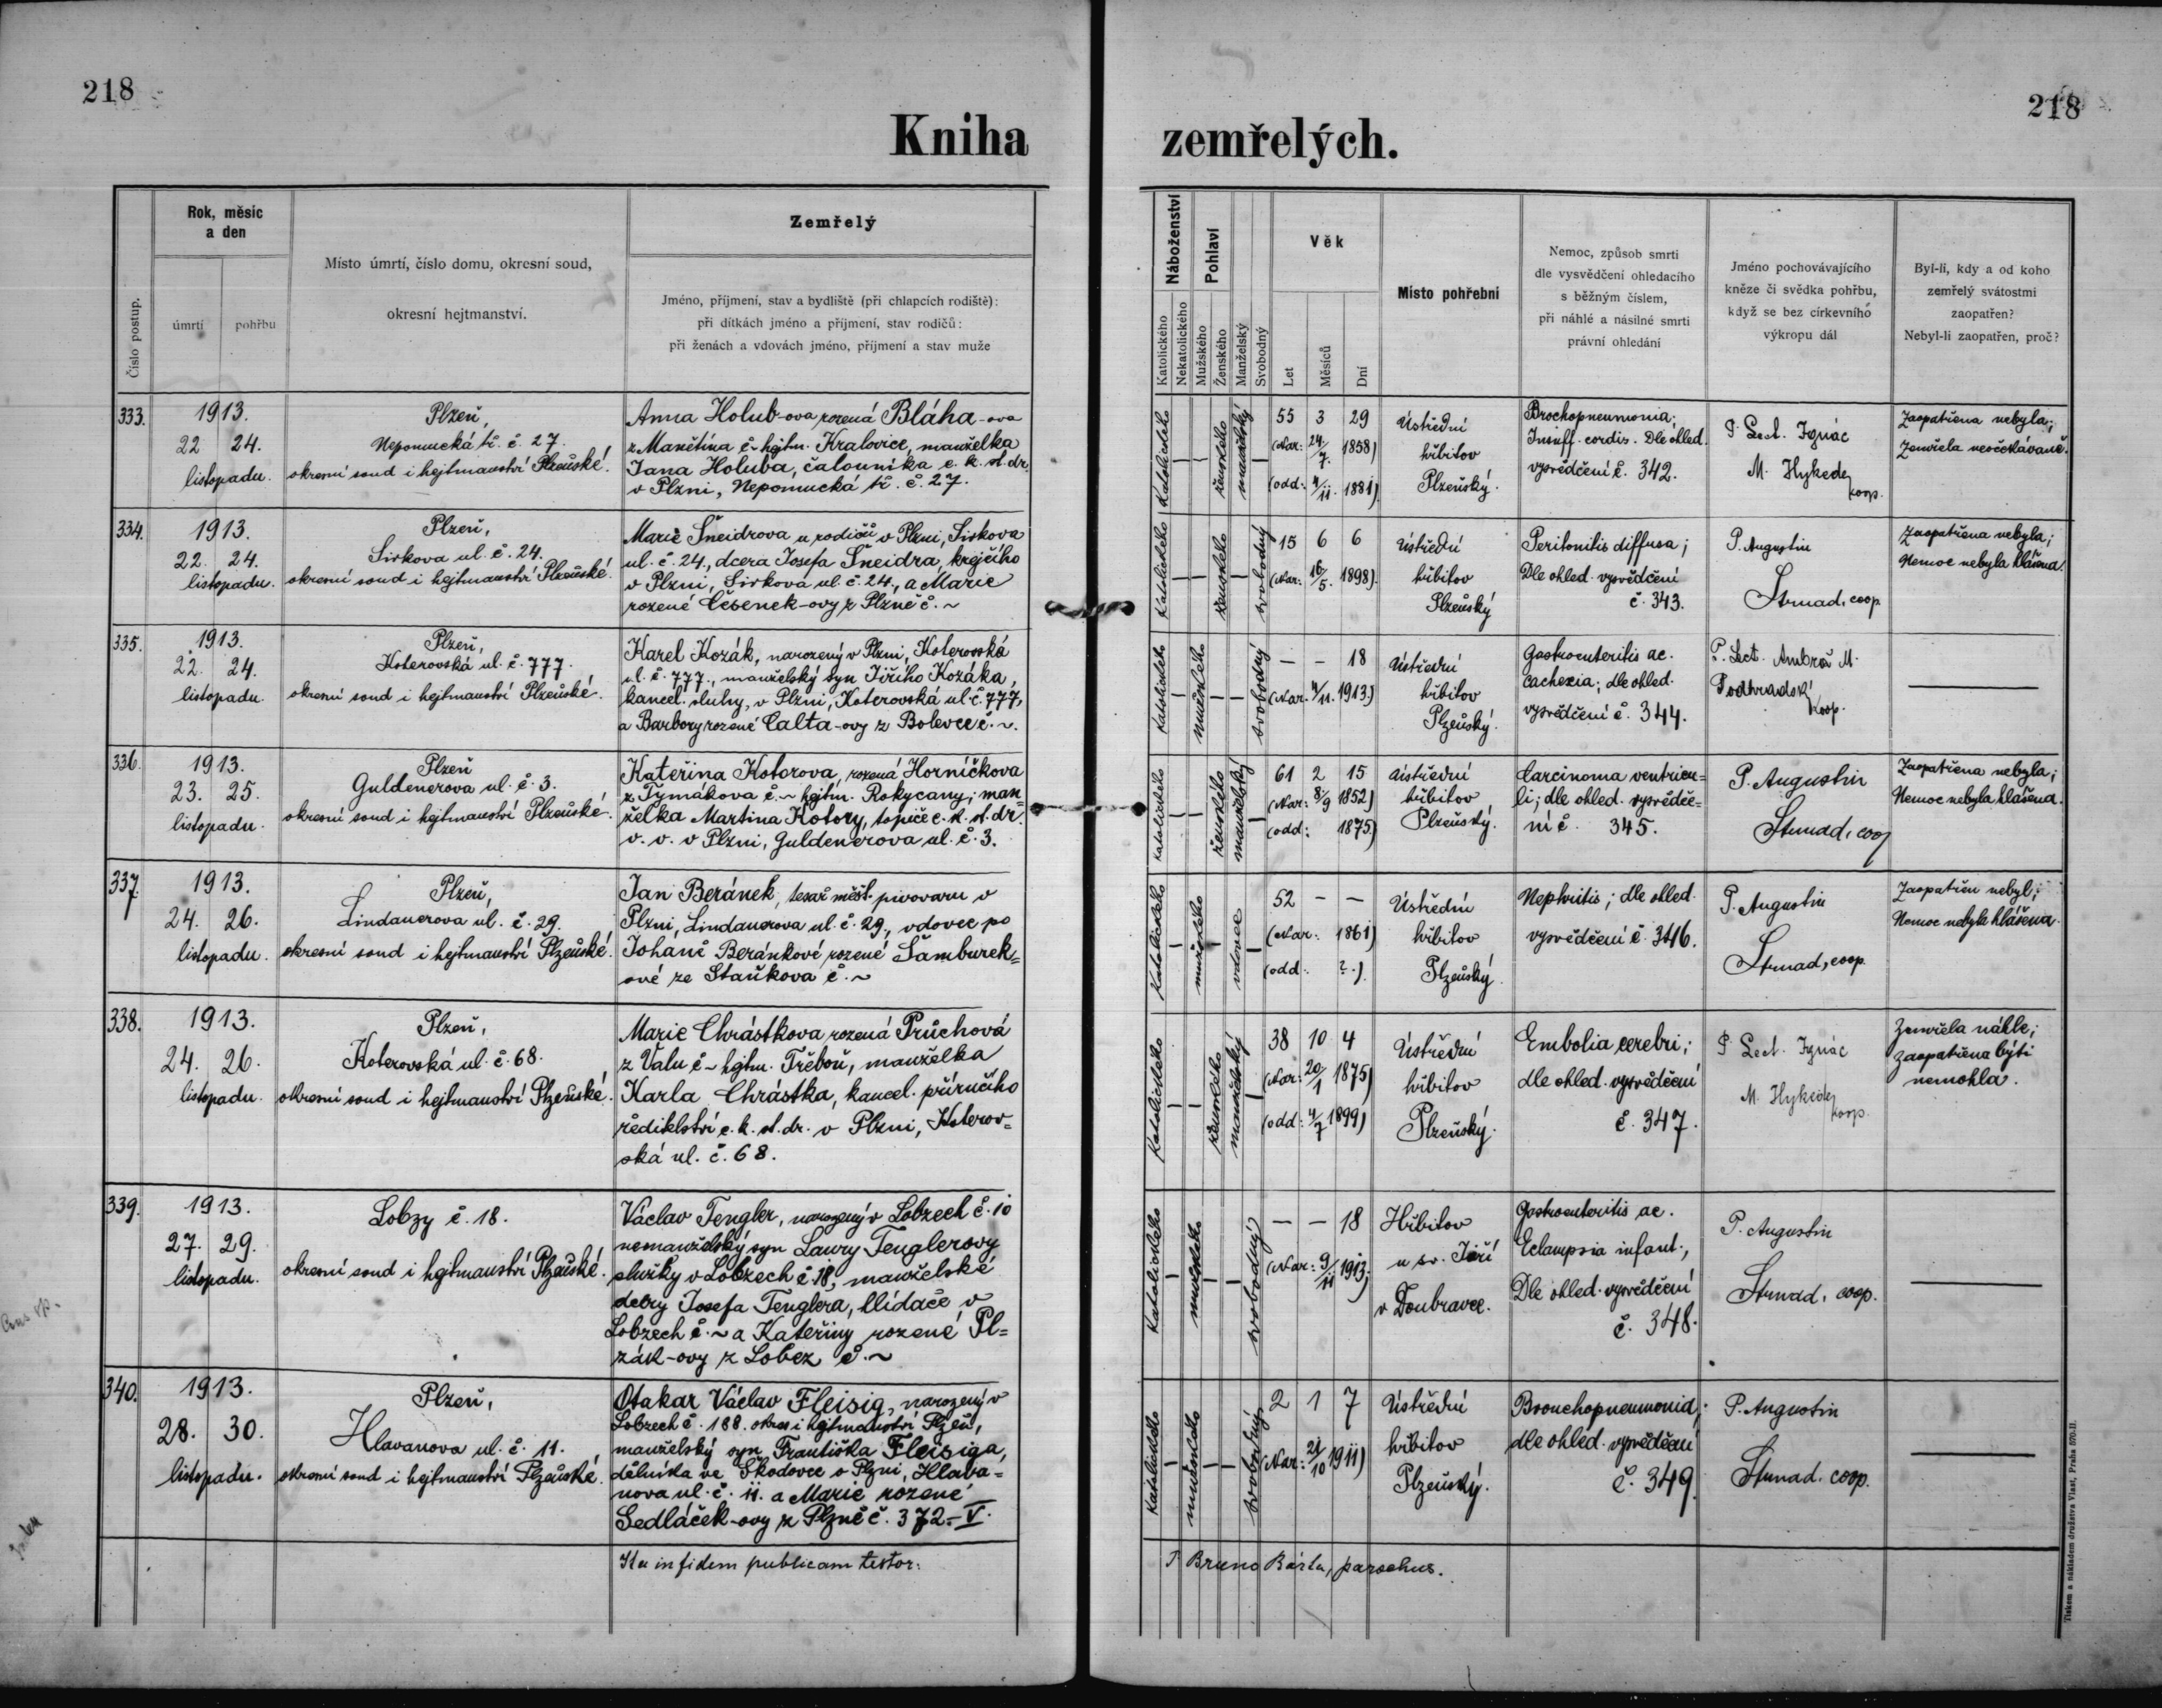 218
218
Kniha zemřelých.
Číslo postup.
Rok, měsíc
a den
úmrtí
pohřbu
Místo úmrtí, číslo domu, okresní soud,
okresní hejtmanství.
Zemřelý
Jméno, příjmení, stav a bydliště (při chlapcích rodiště):
při dítkách jméno a příjmení, stav rodičů:
při ženách a vdovách jméno, příjmení a stav muže
Náboženství
Katolického
Nekatolického
Pohlaví
Mužského
Ženského
Manželský
Svobodný
Věk
Let
Měsíců
Dní
Místo pohřební
Nemoc, způsob smrti
dle vysvědčení ohledacího
s běžným číslem,
při náhlé a násilné smrti
právní ohledání
Jméno pochovávajícího
kněze či svědka pohřbu,
když se bez církevního
výkropu dál
Byl-li, kdy a od koho
zemřelý svátostmi
zaopatřen?
Nebyl-li zaopatřen, proč?
333.
1913.
22 24.
listopadu.
Plzeň,
Nepomucká tř. č. 27.
okresní soud i hejtmanství Plzeňské.
Anna Holub-ova rozená Bláha-ova
z Manětína č ~ hejtm. Kralovice, manželka
Jana Holuba, čalouníka c. k. st. dr.
v Plzni, Nepomucká tř. č. 27.
katolického
ženského
manželský
55 3 29
(Nar: 24/7. 1858)
(odd: 4/11. 1881)
Ústřední
hřbitov
Plzeňský.
Brochopneumonia;
Insuff. cordis. Dle ohled.
vysvědčení č. 342.
P. Lect. Ignác
M. Hykede
koop.
Zaopatřena nebyla;
Zemřela neočekávaně.
334.
1913.
22. 24.
listopadu.
Plzeň,
Sirkova ul. č. 24.
okresní soud i hejtmanství Plzeňské.
Marie Šneidrova u rodičů v Plzni, Sirkova
ul. č. 24., dcera Josefa Šneidra, krejčího
v Plzni, Sirková ul. č. 24., a Marie
rozené Česenek-ovy z Plzně č. ~
katolického
ženského
svobodný
15 6 6
(Nar: 16/5. 1898).
Ústřední
hřbitov
Plzeňský
Peritonitis diffusa;
Dle ohled. vysvědčení
č. 343.
P. Augustin
Strnad, coop.
Zaopatřena nebyla;
Nemoc nebyla hlášena.
335.
1913.
22. 24.
listopadu.
Plzeň,
Koterovská ul. č. 777.
okresní soud i hejtmanství Plzeňské.
Karel Kozák, narozený v Plzni, Koterovská
ul. č. 777., manželský syn Jiřího Kozáka,
kancel. sluhy, v Plzni, Koterovská ul. č. 777,
a Barbory rozené Calta-ovy z Bolevce č. ~.
katolického
mužského
svobodný
— — 18
(Nar. 4/11. 1913.)
Ústřední
hřbitov
Plzeňský.
Gastroenteritis ac.
Cachexia; dle ohled.
vysvědčení č. 344.
P. Lect. Ambrož M.
Podhradský
koop.
336.
1913.
23. 25.
listopadu.
Plzeň
Guldenerova ul. č. 3.
okresní soud i hejtmanství Plzeňské.
Kateřina Kotorova, rozená Horníčkova
z Tymákova č. ~ hejtm. Rokycany; man=
želka Martina Kotory, topiče c. k. st. dr.
v. v. v Plzni, Guldenerova ul. č. 3.
katolického
ženského
manželský
61 2 15
(Nar: 8/9 1852)
(odd: 1875)
Ústřední
hřbitov
Plzeňský.
Carcinoma ventricu=
li; dle ohled. vysvědče=
ní č. 345.
P. Augustin
Strnad, coop
Zaopatřena nebyla;
Nemoc nebyla hlášena.
337.
1913.
24. 26.
listopadu.
Plzeň,
Lindauerova ul. č. 29.
okresní soud i hejtmanství Plzeňské.
Jan Beránek, tesař měšť. pivovaru v
Plzni, Lindauerova ul. č. 29., vdovec po
Johaně Beránkové rozené Šamburek=
ové ze Staňkova č. ~
katolického
mužského
vdovec
52 — —
(Nar: 1861)
(odd: ?.)
Ústřední
hřbitov
Plzeňský.
Nephritis; dle ohled.
vysvědčení č. 346.
P. Augustin
Strnad, coop.
Zaopatřen nebyl;
Nemoc nebyla hlášena.
338.
1913.
24. 26.
listopadu.
Plzeň,
Koterovská ul. č. 68.
okresní soud i hejtmanství Plzeňské.
Marie Chrástkova rozená Průchová
z Valu č ~ hejtm. Třeboň, manželka
Karla Chrástka, kancel. příručího
ředitelství c. k. st. dr. v Plzni, Koterov=
ská ul. č. 68.
katolického
ženského
manželský
38 10 4
(Nar: 20/1 1875)
(odd: 4/7 1899)
Ústřední
hřbitov
Plzeňský.
Embolia cerebri;
dle ohled. vysvědčení
č. 347.
P. Lect. Ignác
M. Hykede
koop.
Zemřela náhle;
zaopatřena býti
nemohla.
339.
1913.
27. 29.
listopadu.
Lobzy č. 18.
okresní soud i hejtmanství Plzeňské.
Václav Tengler, narozený v Lobzech č. 10
nemanželský syn Laury Tenglerovy
služky v Lobzech č. 18, manželské
dcery Josefa Tenglera, hlídače v
Lobzech č. ~ a Kateřiny rozené Pl=
zák-ovy z Lobez č. ~
katolického
mužského
svobodný
— — 18
(Nar: 9/11 1913.)
Hřbitov
u sv. Jiří
v Doubravce.
Gastroenteritis ac.
Eclampsia infant.,
Dle ohled. vysvědčení
č. 348.
P. Augustin
Strnad, coop.
340.
1913.
28. 30.
listopadu.
Plzeň,
Hlavanova ul. č. 11.
okresní soud i hejtmanství Plzeňské.
Otakar Václav Fleisig, narozený v
Lobzech č. 188. okres i hejtmanství Plzeň,
manželský syn Františka Fleisiga,
dělníka ve Škodovce v Plzni, Hlava=
nova ul. č. 11. a Marie rozené
Sedláček-ovy z Plzně č. 372.-V.
katolického
mužského
svobodný
2 1 7
(Nar: 21/10 1911)
Ústřední
hřbitov
Plzeňský.
Bronchopneumonia;
dle ohled. vysvědčení
č. 349.
P. Augustin
Strnad. coop.
Ita in fidem publicam testor:
P. Bruno Bárta, parochus.
Tiskem a nákladem družstva Vlast, Praha 570-II.